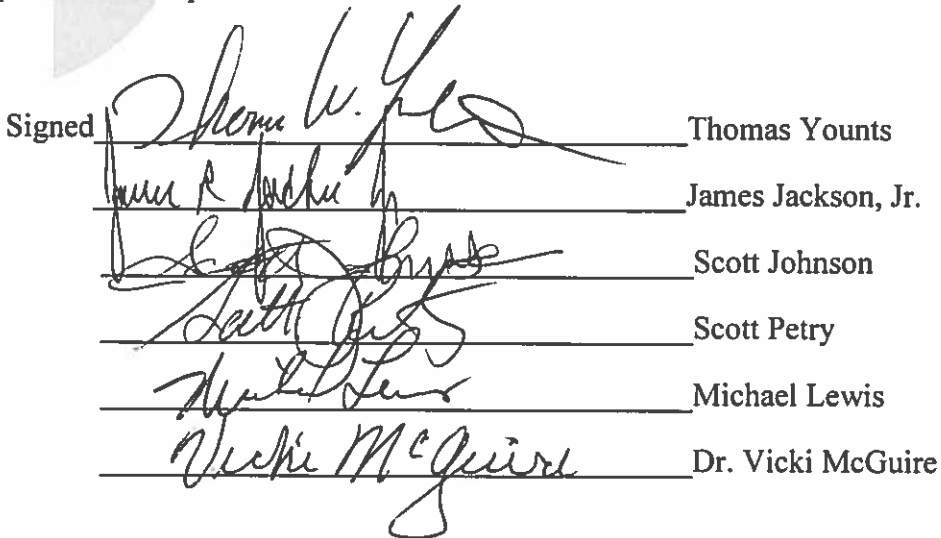 Signed Thomas W. Younts Thomas Younts
James R Jackson Jr James Jackson, Jr.
Scott Johnson
Scott Petry Scott Petry
Michael Lewis Michael Lewis
Vicki McGuire Dr. Vicki McGuire